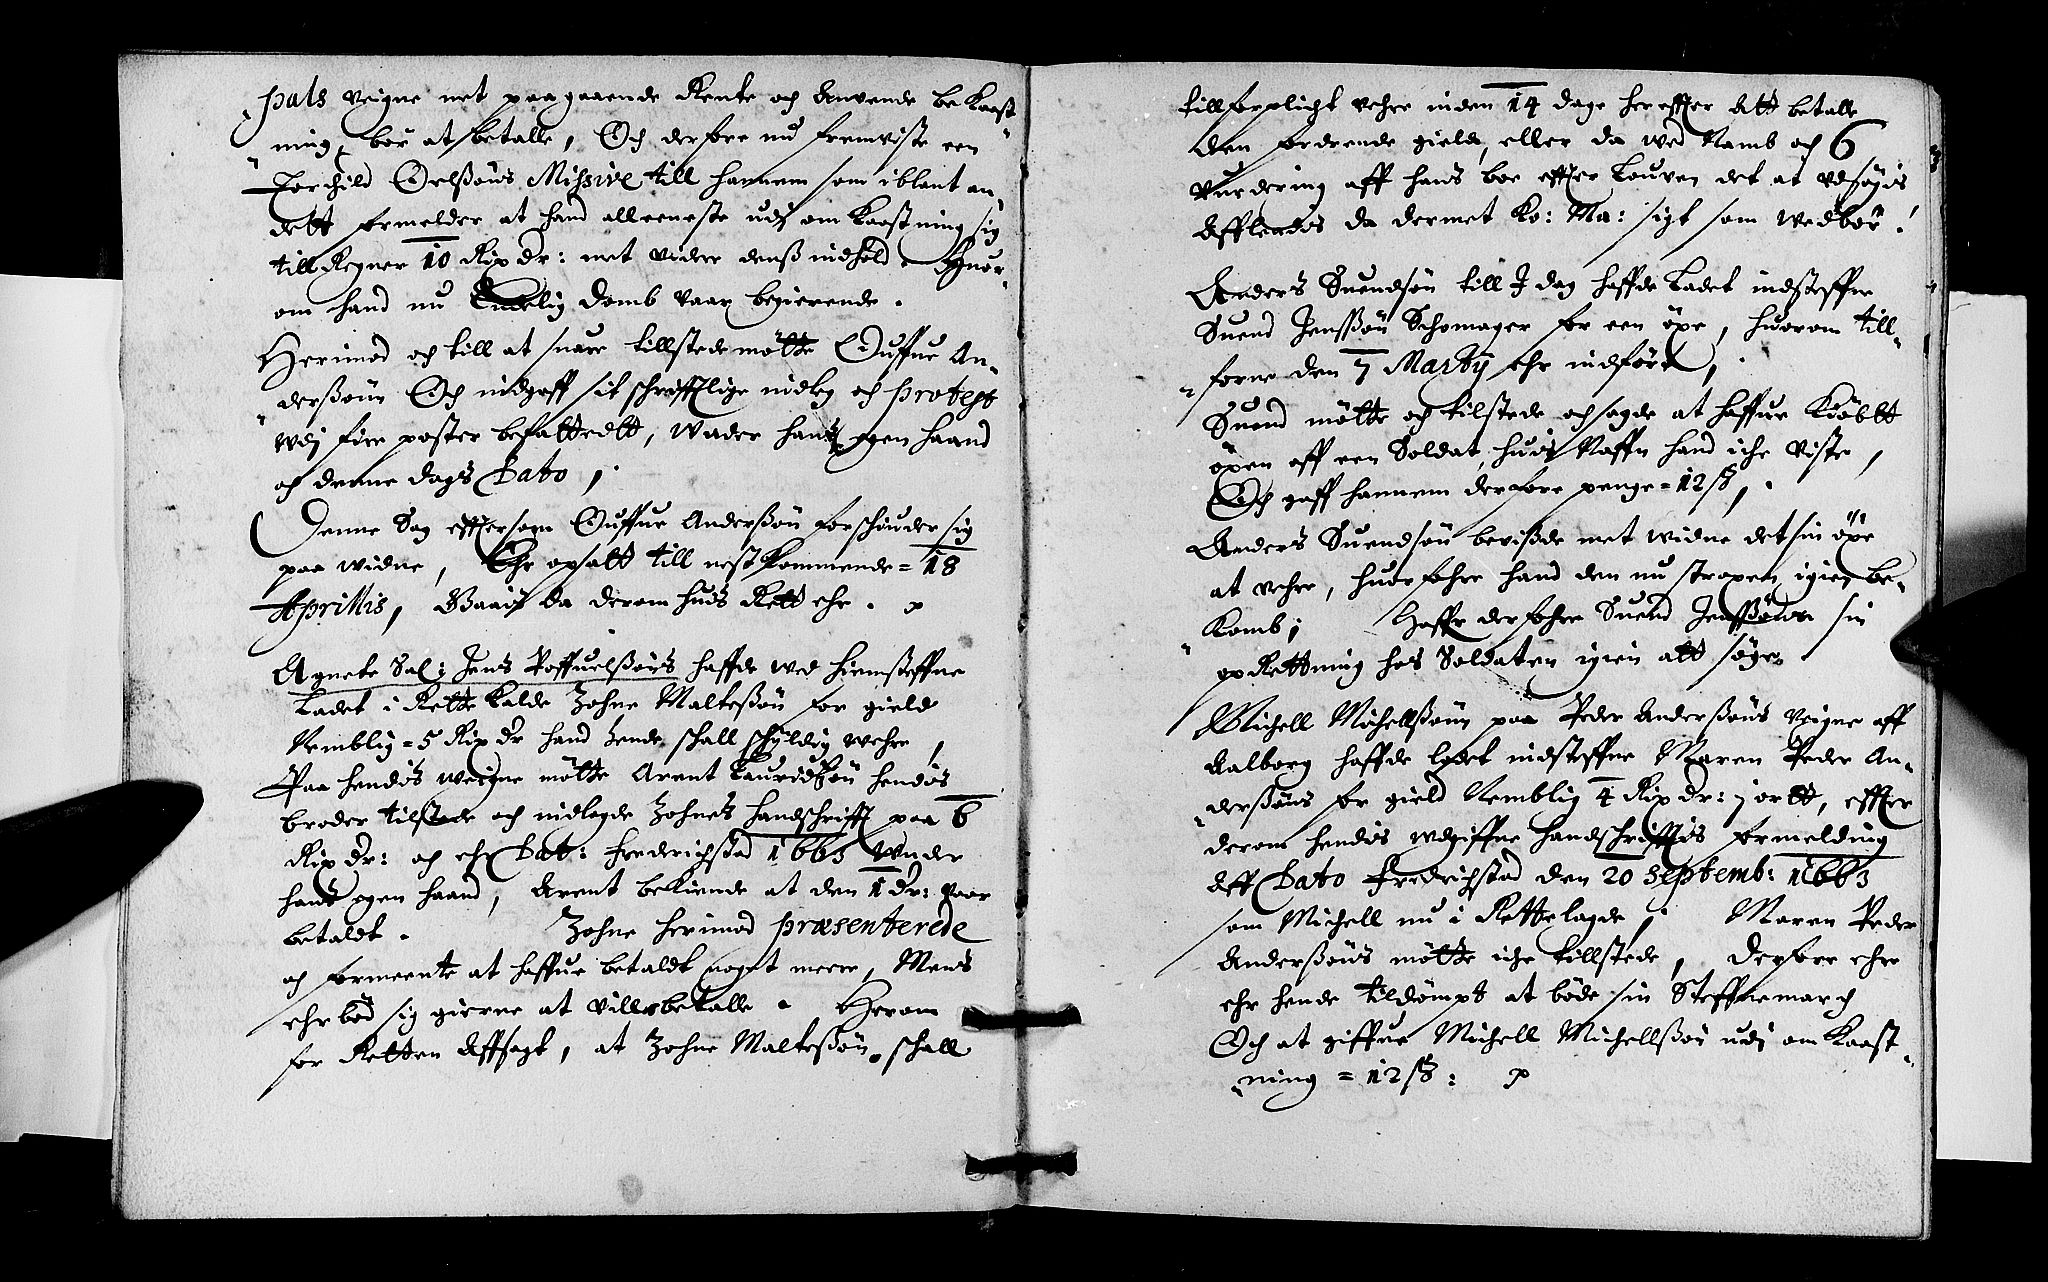 pals veigne met paagaaende Rente och Anvende bekaast
ning, bør at betalle, Och derfore nu fremviste een
Torchild Oelsøns Missive till hannem som iblant an„
dett formelder at hand alleeneste udj om kaastning sig
till Regner 10 Rix dr: met videre dens indhold. Huor„
om hand nu Endelig domb vaar begierende.
Herimod och till at suare tillstede møtte Guffue An„
derssøn Och indgaff sit schrifftlige indleg och protest
udj fire poster befattedtt, under hans egen haand
och denne dags Dato,
Denne Sag effttersom Guffue Anderssøn forschiuder sig
paa widne, Ehr opsatt till nest kommende = 18
Aprillis, Gaais da derom huis Rett ehr.
Agnete Sal: Jens Poffuelssøns haffde wed hiemsteffne
Ladet i Rette kalde Johne Maltessøn for gield
Nemblig = 5 Rix dr hand hende schall schyldig wehre,
Paa hendis weigne møtte Arent Lauridssøn hendis
broder tilstede och indlagde Johnes handschrifft paa 6
Rix dr: och ehr Dat: Frederichstad 1663 Under
hans egen haand, Arent bekiende at den 1 dr: vaar
betaldt. Johne herimod præsenterede
och formeente at haffue betaldt noget meere, Mens
ehrbød sig gierne at ville betalle. Herom
for Retten Affsagt, at Johne Maltessøn schall
tillforplicht vehre inden 14 dage hereffter att betalle
den fordrende gield, eller da wed Namb och 6
vurdering aff hans boe effter Louven det at udsøgis
Afflendis da dermet Ko: Ma: sigt som wedbør.
Anders Suendsøn till J dag haffde Ladet indsteffne
Suend Jenssøn Schomager for een øxe, huorom till„
forne den 7 Martij ehr indført,
Suend møtte och tilstede och sagde at haffue kiøbtt
øxen aff een Soldat, huis Naffn hand iche viste,
Och gaff hannem derfore penge = 12 s,
Anders Suendsøn bevisde met widne det sin øxe
at vehre, huorfohre hand den nu straxen igien be„
komb; Haffr derfohre Suend Jenssøn sin
opRettning hos Soldaten igien att søge
Michell Michellssøn paa Peder Anderssøns veigne aff
Aalborg haffde ladet indsteffne Maren Peder An„
derssøns for gield Nemblig 4 Rix dr: 1 ortt, effter
derom hendis udgiffne handschrifftis formelding
Aff Dato Fredrichstad den 20 Septemb: 1663
som Michell nu i Rette lagde, Maren Peder
Anderssøns møtte iche tillstede, Derfore ehre
ehr hende tildømpt at bøde sin Steffnemarch
Och at giffue Michell Michellssøn udj om kaast„
ning = 12 s: